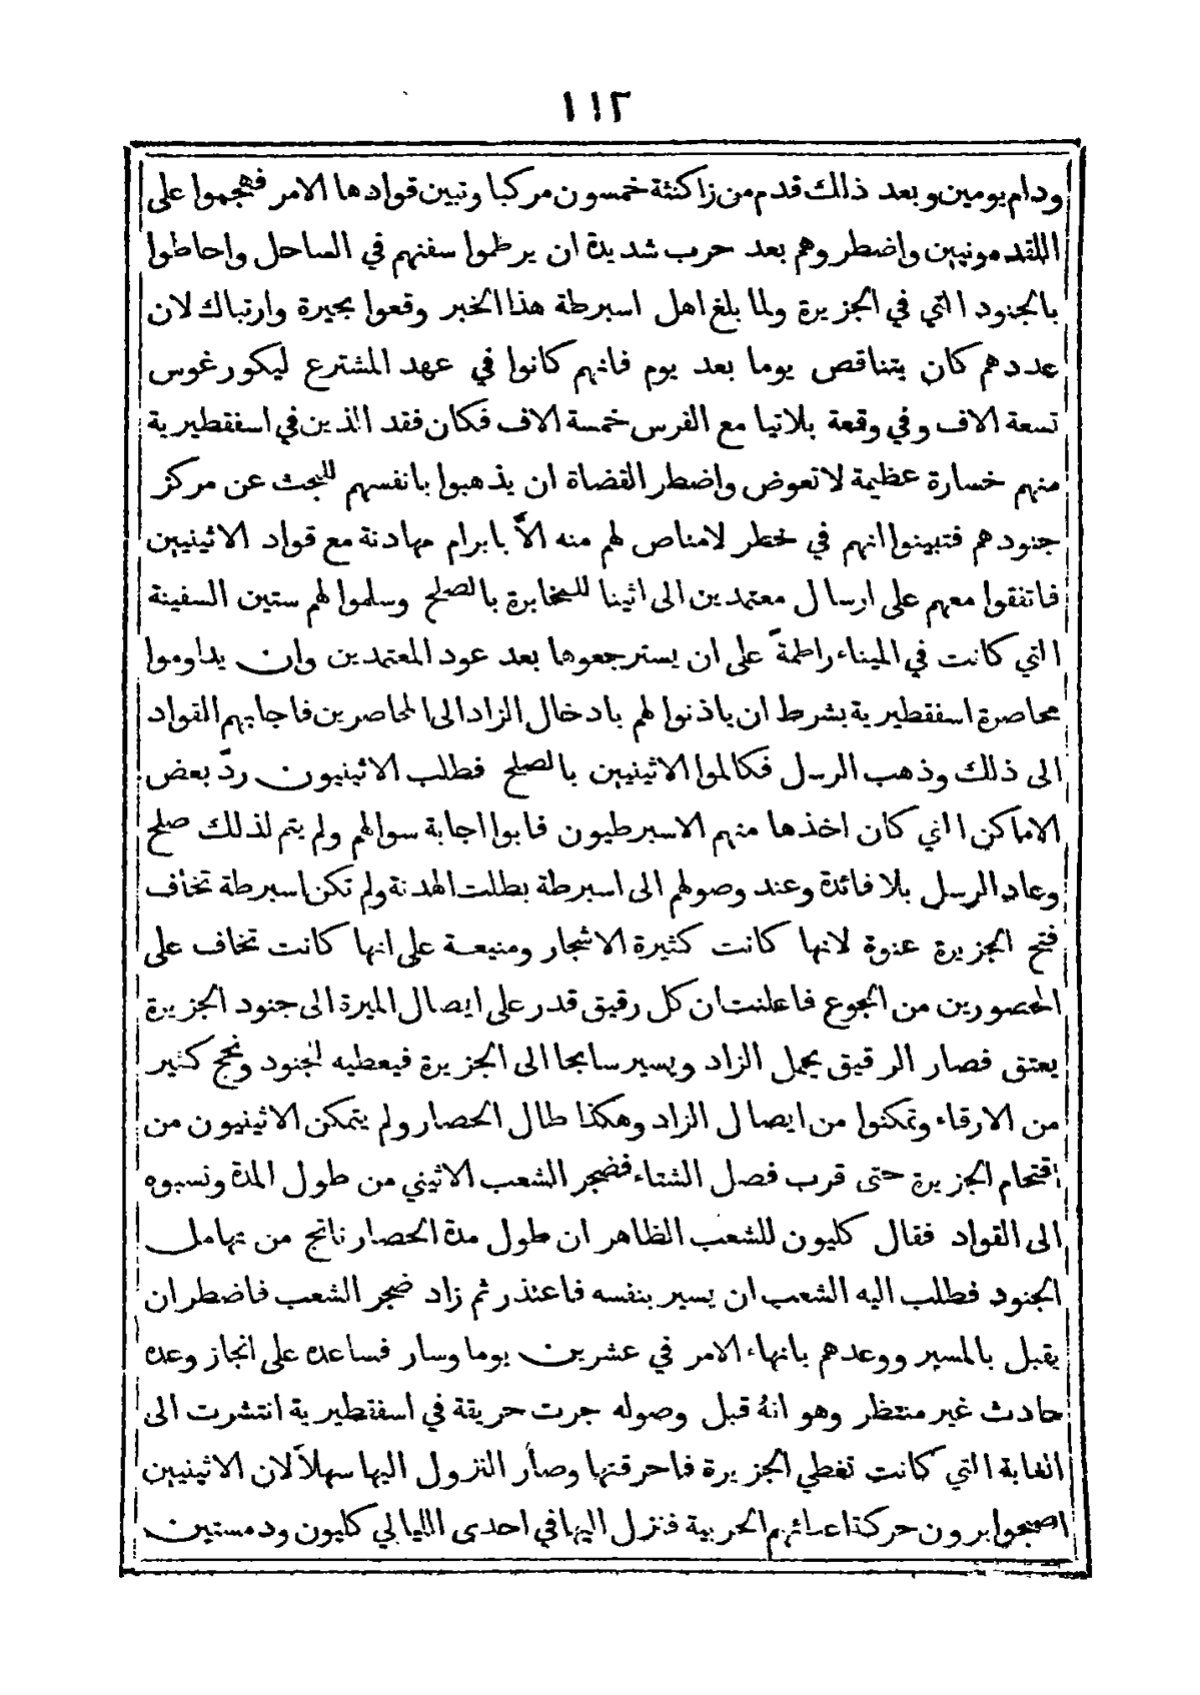 ١١٢
ودام يومين وبعد ذلك قدم من زاكنثة خمسون مركبا وتبين قوادها الامر فهجموا على
اللقدمونيين واضطروهم بعد حرب شديدة ان يرطموا سفنهم في الساحل واحاطوا
بالجنود التي في الجزيرة ولما بلغ اهل اسبرطة هذا الخبر وقعوا بحيرة وارتباك لان
عددهم كان يتناقص يوما بعد يوم فانهم كانوا في عهد المشترع ليكورغوس
تسعة الاف وفي وقعة بلاتيا مع الفرس خمسة الاف فكان فقد الذين في اسفقطيرية
منهم خسارة عظيمة لا تعوض واضطر القضاة ان يذهبوا بانفسهم للبحث عن مركز
جنودهم فتبينوا انهم في خطر لامناص لهم منه الاّ بابرام مهادنة مع قواد الاثينيين
فاتفقوا معهم على ارسال معتمدين الى اثينا للمخابرة بالصلح وسلموا لهم ستين السفينة
التي كانت في الميناء راطمةً على ان يسترجعوها بعد عود المعتمدين وان يداوموا
محاصرة اسفقطيرية بشرط ان ياذنوا لهم بادخال الزاد الى المحاصرين فاجابهم القواد
الى ذلك وذهب الرسل فكالموا الاثينيين بالصلح فطلب الاثينيون ردّ بعض
الاماكن التي كان اخذها منهم الاسبرطيون فابوا اجابة سوالهم ولم يتم لذلك صلح
وعاد الرسل بلا فائدة وعند وصولهم الى اسبرطة بطلت الهدنة ولم تكن اسبرطة تخاف
فتح الجزيرة عنوة لانها كانت كثيرة الاشجار ومنيعة على انها كانت تخاف على
المحصورين من الجوع فاعلنت ان كل رقيق قدر على ايصال الميرة الى جنود الجزيرة
يعتق فصار الرقيق يحمل الزاد ويسير سابحا الى الجزيرة فيعطيه للجنود ونجح كثير
من الارقاء وتمكنوا من ايصال الزاد وهكذا طال الحصار ولم يتمكن الاثينيون من
اقتحام الجزيرة حتى قرب فصل الشتاء فضجر الشعب الاثيني من طول المدة ونسبوه
الى القواد فقال كليون للشعب الظاهر ان طول مدة الحصار ناتج من تهامل
الجنود فطلب اليه الشعب ان يسير بنفسه فاعتذر ثم زاد ضجر الشعب فاضطر ان
يقبل بالمسير ووعدهم بانهاء الامر في عشرين يوما وسار فساعده على انجاز وعده
حادث غير منتظر وهو انهُ قبل وصوله جرت حريقة في اسفقطيرية انتشرت الى
الغابة التي كانت تغطي الجزيرة فاحرقتها وصار النزول اليها سهلاً لان الاثينيين
اصبحوا يرون حركة اعدائهم الحربية فنزل اليها في احدى الليالي كليون ودمستين